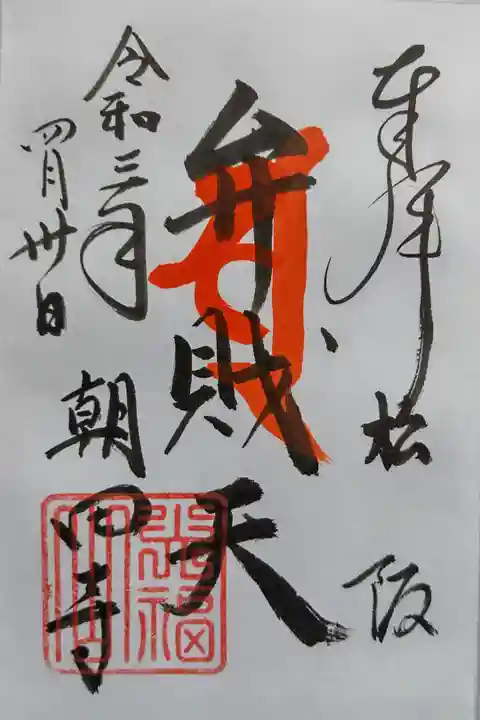 奉拝
松阪
弁財天
令和三年
四月卅日
朝田寺